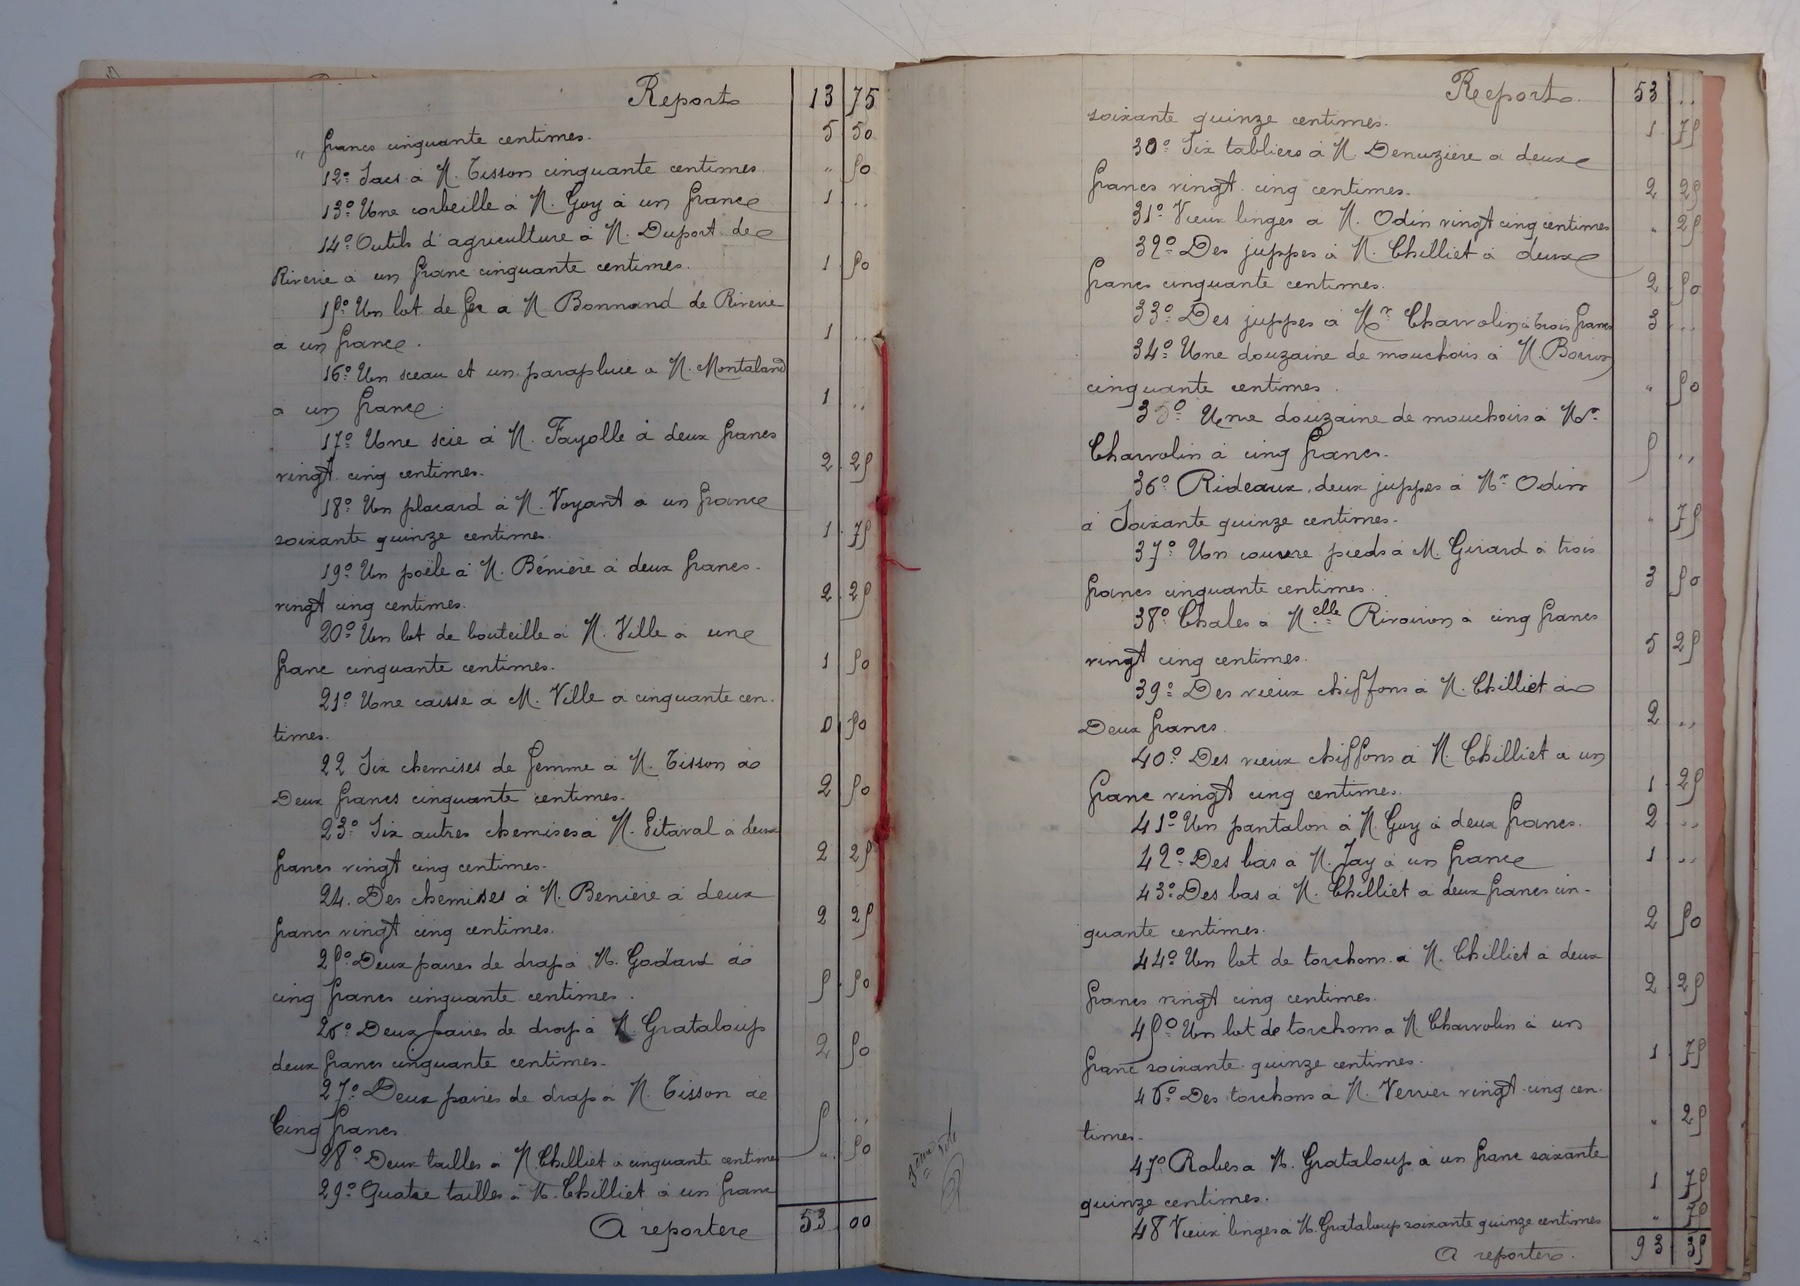 Report 13 75
" francs cinquante centimes. 5 50
12° Sacs à M. Tisson cinquante centimes. " 50
13° Une corbeille à M. Guy à un franc 1 ..
14° Outils d'agriculture à M. Duport de
Riverie à un franc cinquante centimes. 1 50
15° Un lot de fer a M Bonnand de Riverie
a un franc. 1 ..
16° Un sceau et un parapluie a M. Montaland
a un franc. 1 ..
17° Une scie à M. Fayolle à deux francs
vingt cinq centimes. 2 25
18° Un placard à M. Voyant a un franc
soixante quinze centimes. 1 75
19° Un poële à M. Bénière à deux francs.
vingt cinq centimes. 2 25
20° Un lot de bouteille à M. Ville a une
franc cinquante centimes. 1 50
21° Une caisse a M. Ville a cinquante cen.
times. 0 50
22 Six chemises de femme a M. Tisson à
Deux francs cinquante centimes. 2 50
23° Six autres chemises à M. Pitaval à deux
francs vingt cinq centimes. 2 25
24. Des chemises à M. Benière à deux
francs vingt cinq centimes. 2 25
25° Deux paires de drap à M. Godard à
cinq francs cinquante centimes. 5 50
26° Deux paires de drap à M. Grataloup
deux francs cinquante centimes. 2 50
27° Deux paires de drap à M. Tisson à
Cinq francs 5 ..
28° Deux tailles à M. Chilliet à cinquante centimes " 50
29° Quatre tailles à M. Chilliet à un franc
A reporter 53 00
Report 53 ..
soixante quinze centimes. 1 75
30° Six tabliers à M. Denuzière a deux
francs vingt cinq centimes. 2 25
31° Vieux linges a M. Odin vingt cinq centimes " 25
32° Des juppes à M. Chilliet à deux
francs cinquante centimes. 2 50
33° Des juppes à Mr Charvolin à trois francs 3 ..
34° Une douzaine de mouchoirs à M.
cinquante centimes. " 50
35° Une douzaine de mouchoirs à Mr
Charvolin à cinq francs. 5 ..
36° Rideaux, deux juppes à Mr Odin
à Soixante quinze centimes. " 75
37° Un couvre pieds à M. Girard à trois
francs cinquante centimes. 3 50
38° Chales à Melle Rivoiron a cinq francs
vingt cinq centimes. 5 25
39° Des vieux chiffons à M. Chilliet à
Deux francs. 2 ..
40° Des vieux chiffons à M. Chilliet a un
franc vingt cinq centimes. 1 25
41° Un pantalon à M. Guy à deux francs. 2 ..
42° Des bas à M. Jay à un franc 1 ..
43° Des bas à M. Chilliet a deux francs cin-
quante centimes. 2 50
44° Un lot de torchons à M. Chilliet à deux
francs vingt cinq centimes. 2 25
45° Un lot de torchons a M Charvolin à un
franc soixante quinze centimes. 1 75
46° Des torchons à M. Verrier vingt cinq cen.
times. " 25
47° Robes a M. Grataloup a un franc soixante
quinze centimes. 1 75
48 Vieux linges à M. Grataloup soixante quinze centimes " 75
A reporter. 93 35